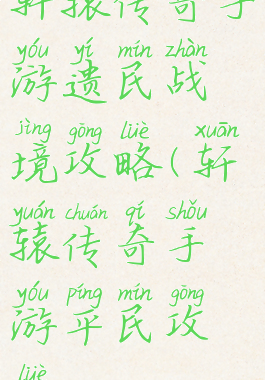 轩辕传奇手
yóu yí mín zhàn
游遗民战
jìng gōng lüè xuān
境攻略(轩
yuán chuán qí shǒu
辕传奇手
yóu píng mín gōng
游平民攻
lüè